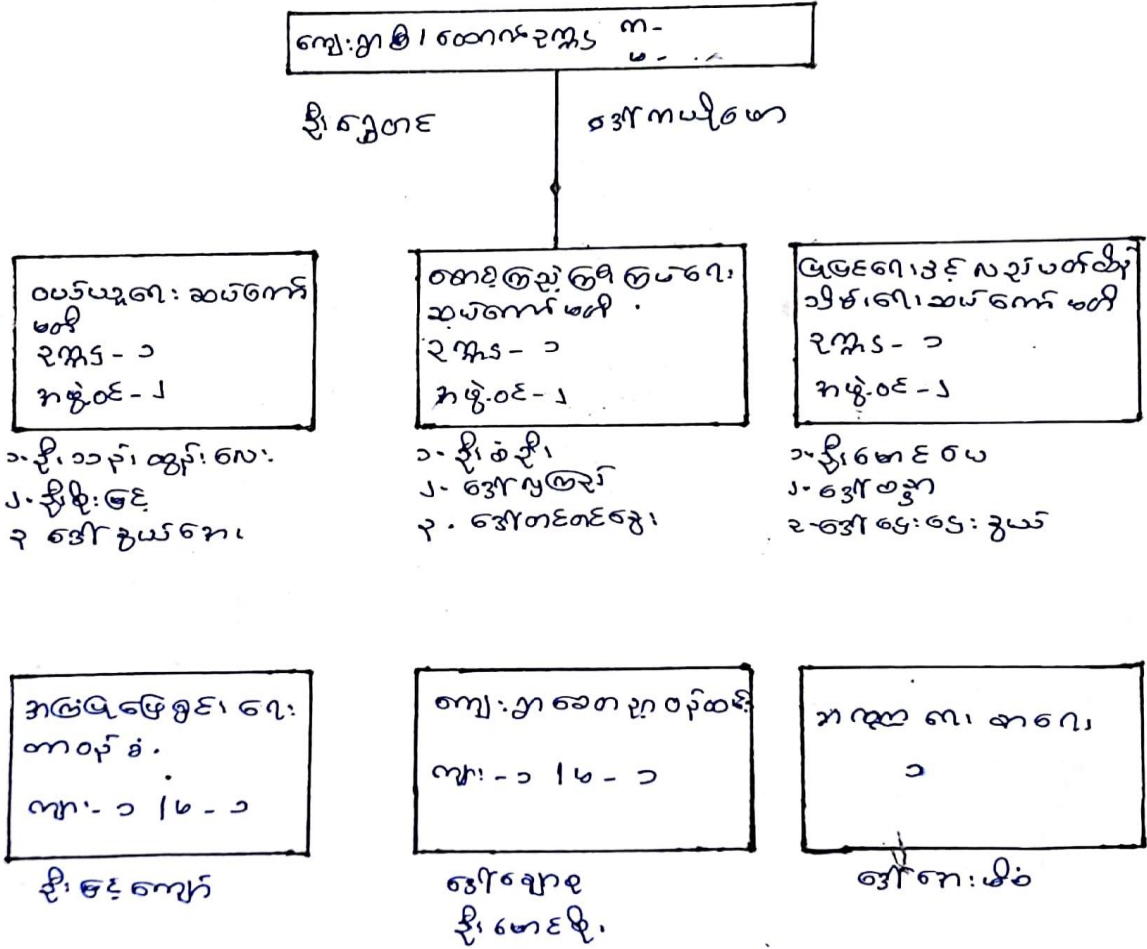 ကျေးရွာစီ၊ထောက်ဥက္ကဌ က-
မ-
ဦးရွှေတင်
ဒေါ်ကယိုမော
ဝယ်ယူရေးဆပ်ကော်
မတီ
ဥက္ကဌ - ၁
အဖွဲ့ဝင် - ၂
၁- ဦးသန်းထွန်းလေး
၂- ဦးစိုးမြင့်
၃ ဒေါ်နွယ်အေး
စောင့်ကြည့်ကြီးကြပ်ရေး
ဆပ်ကော်မတီ
ဥက္ကဌ - ၁
အဖွဲ့ဝင် - ၂
၁- ဦးစံဦး
၂- ဒေါ်လှကြည်
၃- ဒေါ်တင်တင်ဆွေ
ပြုပြင်ရေးနှင့်လည်ပတ်ထိန်း
သိမ်းရေးဆပ်ကော်မတီ
ဥက္ကဌ - ၁
အဖွဲ့ဝင် - ၂
၁- ဦးမောင်ဝေ
၂- ဒေါ်စန္ဒာ
၃- ဒေါ်ဌေးဌေးနွယ်
အကြံပြုဖြေရှင်းရေး
တာဝန်ခံ
ကျား - ၁ / မ - ၁
ဦးမြင့်ကျော်
ကျေးရွာစေတနာ့ဝန်ထမ်း
ကျား - ၁ / မ - ၁
ဒေါ်ချောစု
ဦးမောင်စိုး
ဘဏ္ဍာရေးစာရေး
၁
ဒေါ်အေးမိစံ